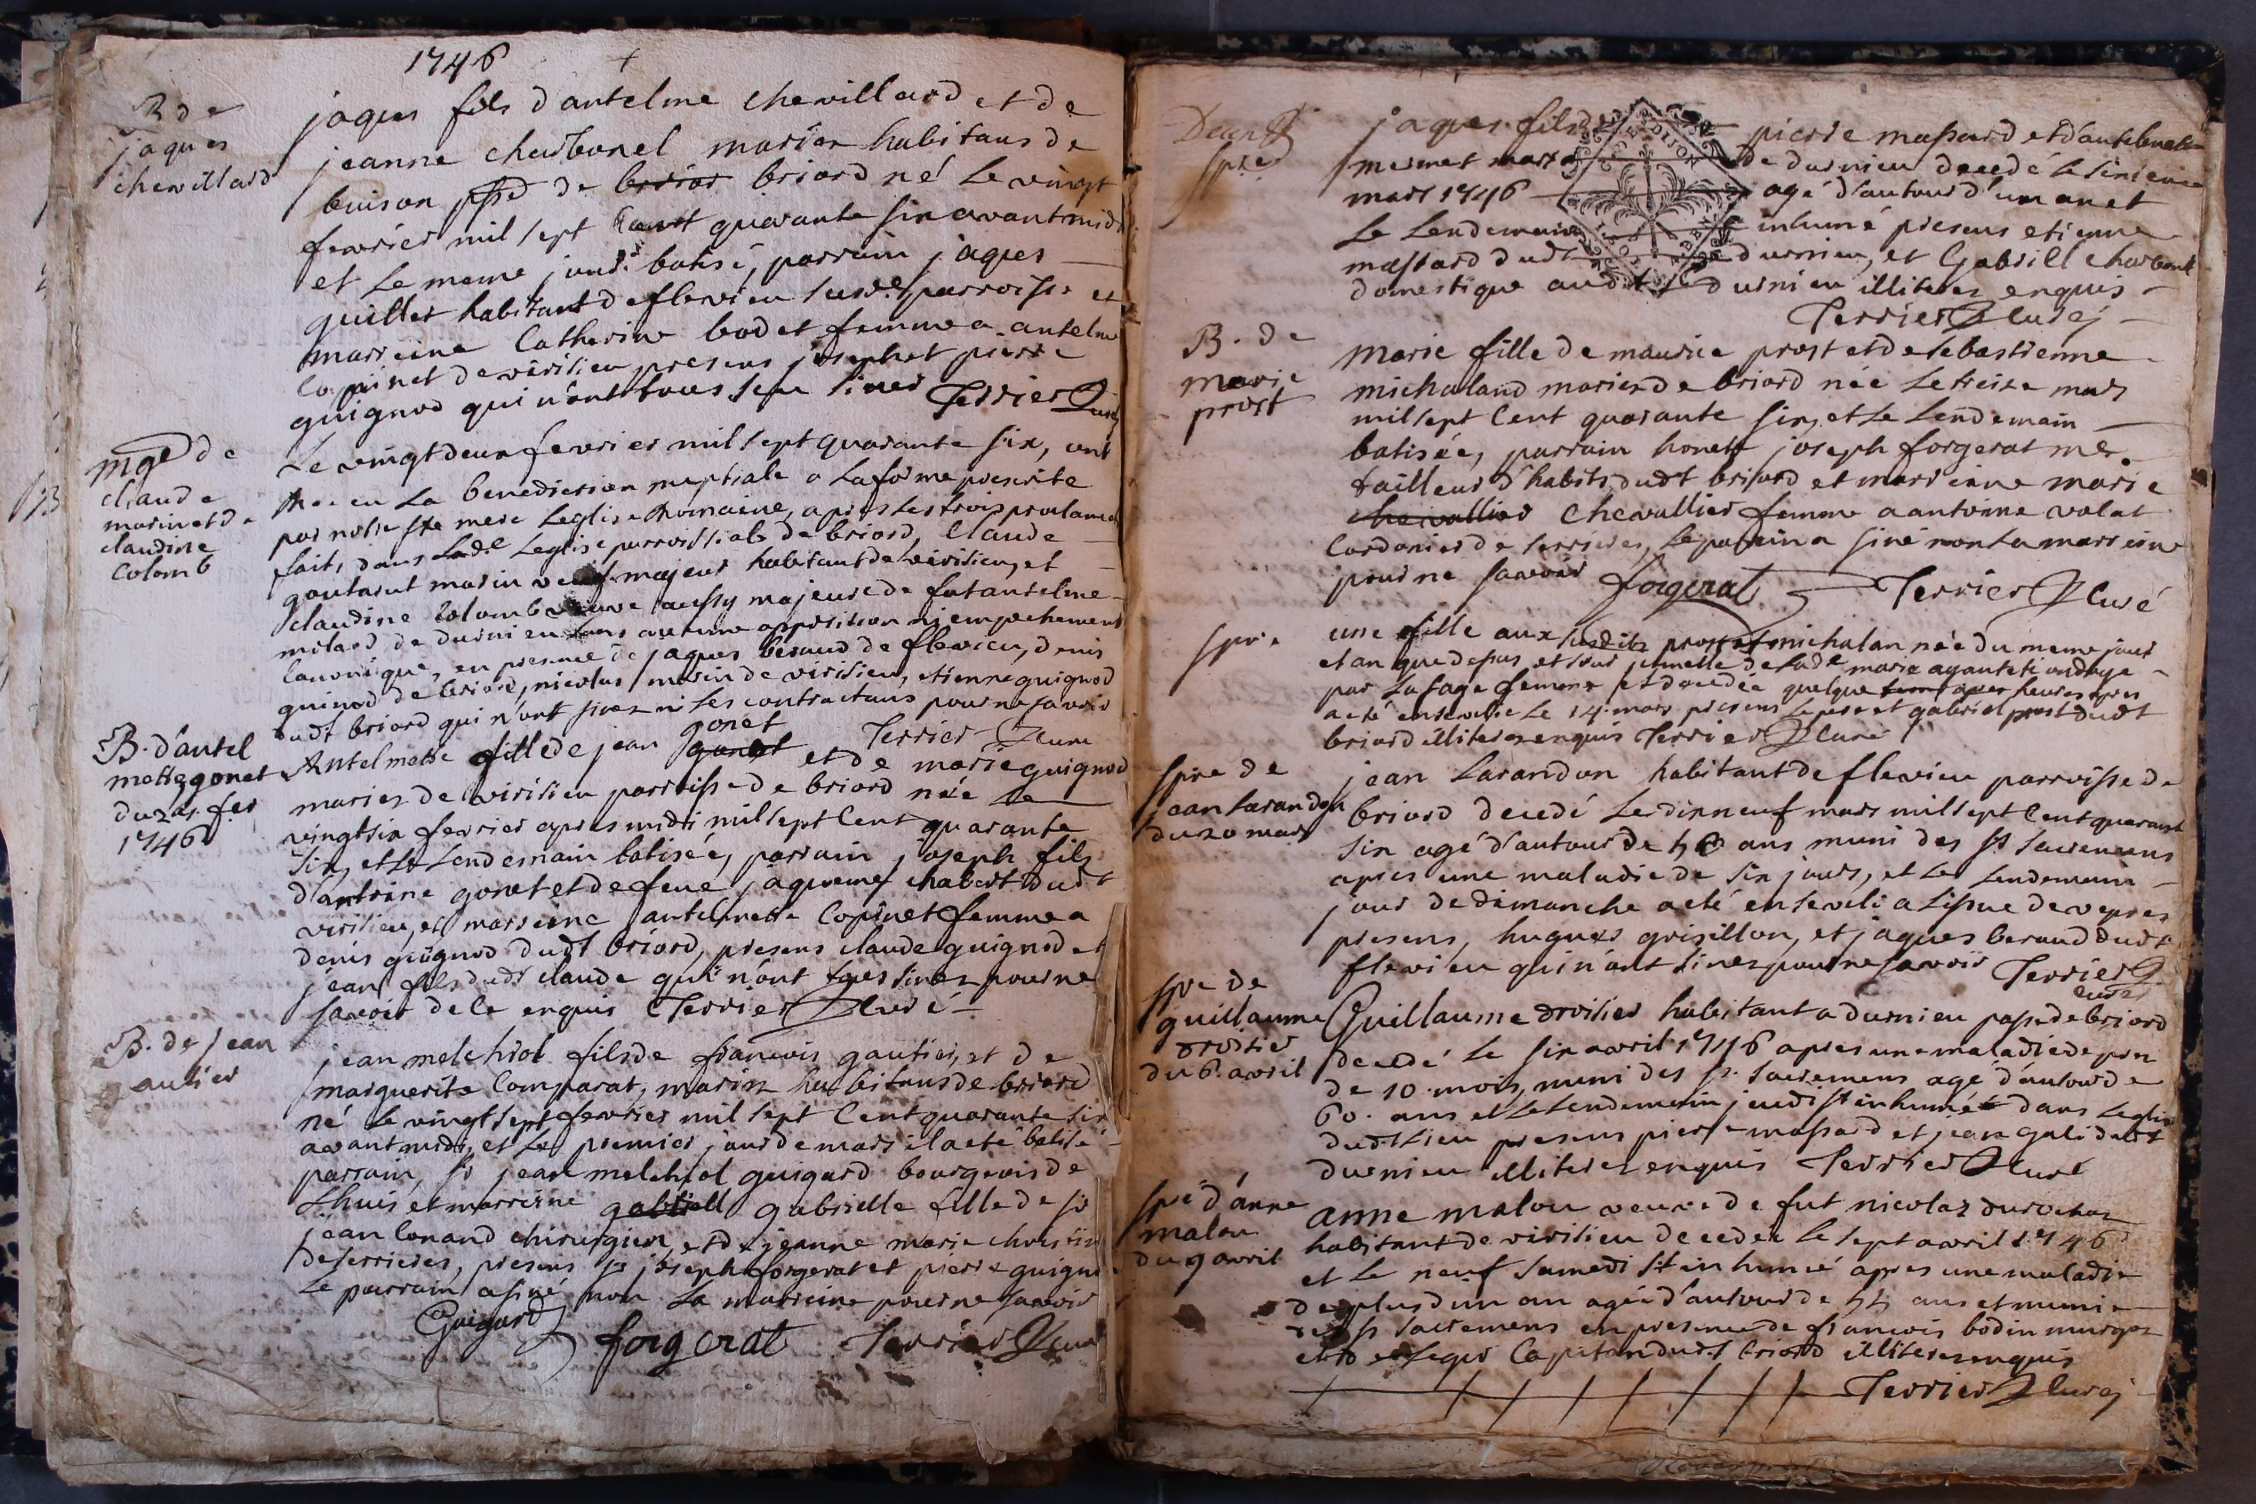 1746
B de
jaques
chevillard
jaques fils d'antelme chevillard et de
jeanne charbonel mariez habitans de
buison psse de briord né le vingt
fevrier mil sept cent quarante six avant midi
et le meme jour batisé, parrain jaques
guillet habitant de flevieu susde parroisse et
marreine Catherine bodet femme a antelme
Copinet de virisieu presens joseph et pierre
guignod qui n'ont tous seu siner Terrier Curé
mge de
claude
marin et de
claudine
Colomb
Le vingt deux fevrier mil sept quarante six, ont
receu La benediction nuptiale a La forme prescrite
par notre ste mere Leglise Romaine, apres Les trois proclamaons
faits dans Lade Leglise parroissiale de briord, Claude
marin veuf majeur habitant de virisieu, et
claudine Colomb veuve aussy majeure de fut antelme
milard de durnieu sans aucune opposition ni empechement
Canonique, en presence de jaques beraud de flevieu, denis
guinod de briord, nicolas marin de virisieu, etienne guignod
dudt briord qui n'ont sinez ni Les contractans pour ne savoir
Terrier Curé
B. d'antel
mette gonet
du 2 . fer
1746
Antelmette fille de jean gonet et de marie guignod
mariez de virisieu parroisse de briord née Le
vingt six fevrier apres midi mil sept Cent quarante
six, et Le Lendemain batisée, parrain joseph fils
d'antoine gonet et de feue jaquemet chabert dudt
virisieu, et marreine antelmette Copinet femme a
denis guignod dudt briord, presens claude guignod et
jean fils dudt claude qui n'ont sinez pour ne
savoir de Ce enquis Terrier Curé
B. de jean
gautier
jean melchiol fils de francois gautier, et de
marguerite Comparat, mariez habitans de briord
né Le vingt sept fevrier mil sept Cent quarante six
avant midi, et Le premier jour de mars il a eté batisé
parrain, sr jean melchiol guigard bourgeois de
Lhuis et marreine gabrielle fille de sr
jean Conand chirurgien, et de jeanne marie christin
de serrieres, presens sr joseph forgerat et pierre guignod
Le parrain a siné non La marreine pour ne savoir
Guigard forgerat Terrier Curé
spre
jaques fils de pierre massard et d'antelmette
mermet mariez de durnieu decedé Le
mars 1746 agé d'autour d'un an et
Le Lendemain inhumé presens etienne
massard dudt durnieu, et Gabriel charbonel
domestique audt durnieu illiterez enquis
Terrier Curé
B. de
marie
prost
Marie fille de maurice prost et de sebastienne
michaland mariez de briord née Le treize mars
mil sept Cent quarante six, et Le Lendemain
batisée, parrain honete joseph forgerat me.
tailleur d'habits dudt briord et marreine marie
chevallier Chevallier femme a antoine volat
Cordonier de serrieres, Le parrain a siné non La marreine
pour ne savoir forgerat Terrier Curé
spre
une fille aux susdits prost et michalan née du meme jour
et an que dessus, et soeur jumelle de Lade marie ayant eté ondoyé
par La sage femme et decedée quelque heures apres
a eté ensevelie Le 14 mars presens Le pere et gabriel prost dudt
briord illiterez enquis Terrier Curé
spre de
jean Larandon
du 20 mars
jean Larandon habitant de flevieu parroisse de
briord decedé Le dix neuf mars mil sept Cent quarante
six agé d'autour de 50 ans muni des st sacremens
apres une maladie de six jours, et Le Lendemain
jour de dimanche a eté enseveli a Lissue de vepres
presens, hugues grisillon, et jaques beraud dudt
flevieu qui n'ont sinez pour ne savoir Terrier
curé
spre de
guillaume
drosier
du 6. avril
Guillaume drosier habitant a durnieu passe de briord
decedé Le six avril 1746 apres une maladie de
de 10. mois, muni des st. sacremens agé d'autour de
60. ans et Le Lendemain jeudi st inhumé dans Leglise
dudt Lieu presens pierre massard et jean gali dudt
durnieu illiterez enquis Terrier Curé
spre d'anne
malou
du 9 avril
anne malou veuve de fut nicolaz durochaz
habitant de virisieu decedée Le sept avril 1746
et Le neuf samedi st inhumée apres une maladie
de plus d'un an agée d'autour de 55 ans et munie
des st sacremens en presence de francois bodin
Capitan dudt briord illiterez enquis
Terrier Curé